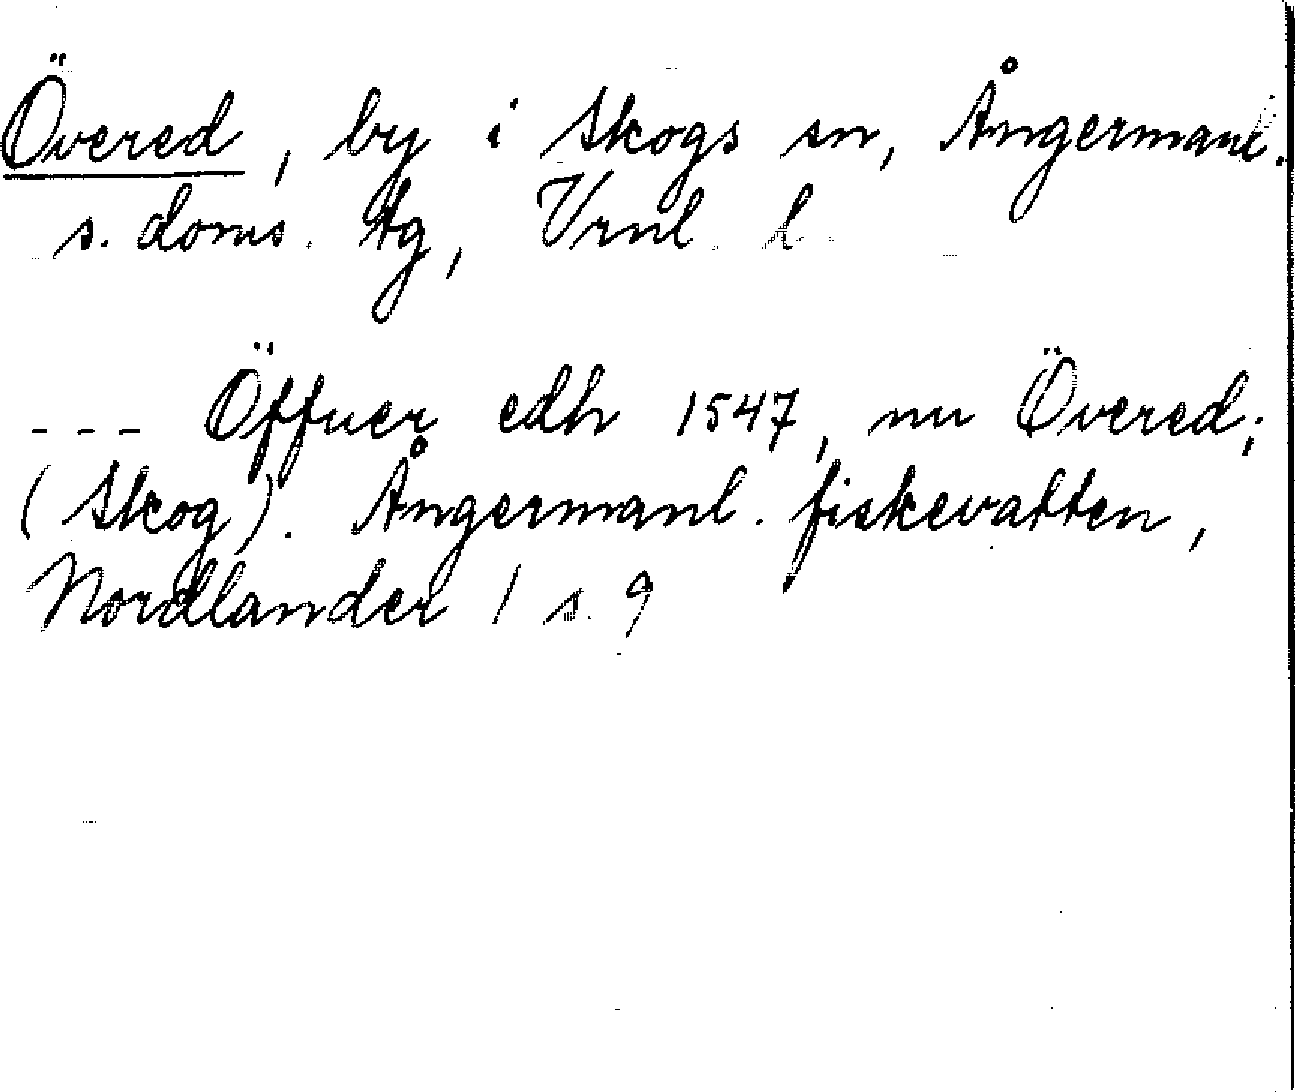 Övered, by i Skogs sn, Ångermanl.
s. doms. tg, Vrnl. l.
--- Öffuer edh 1547, nu Övered;
(Skog). Ångermanl. fiskevatten,
Nordlander 1 s. 9